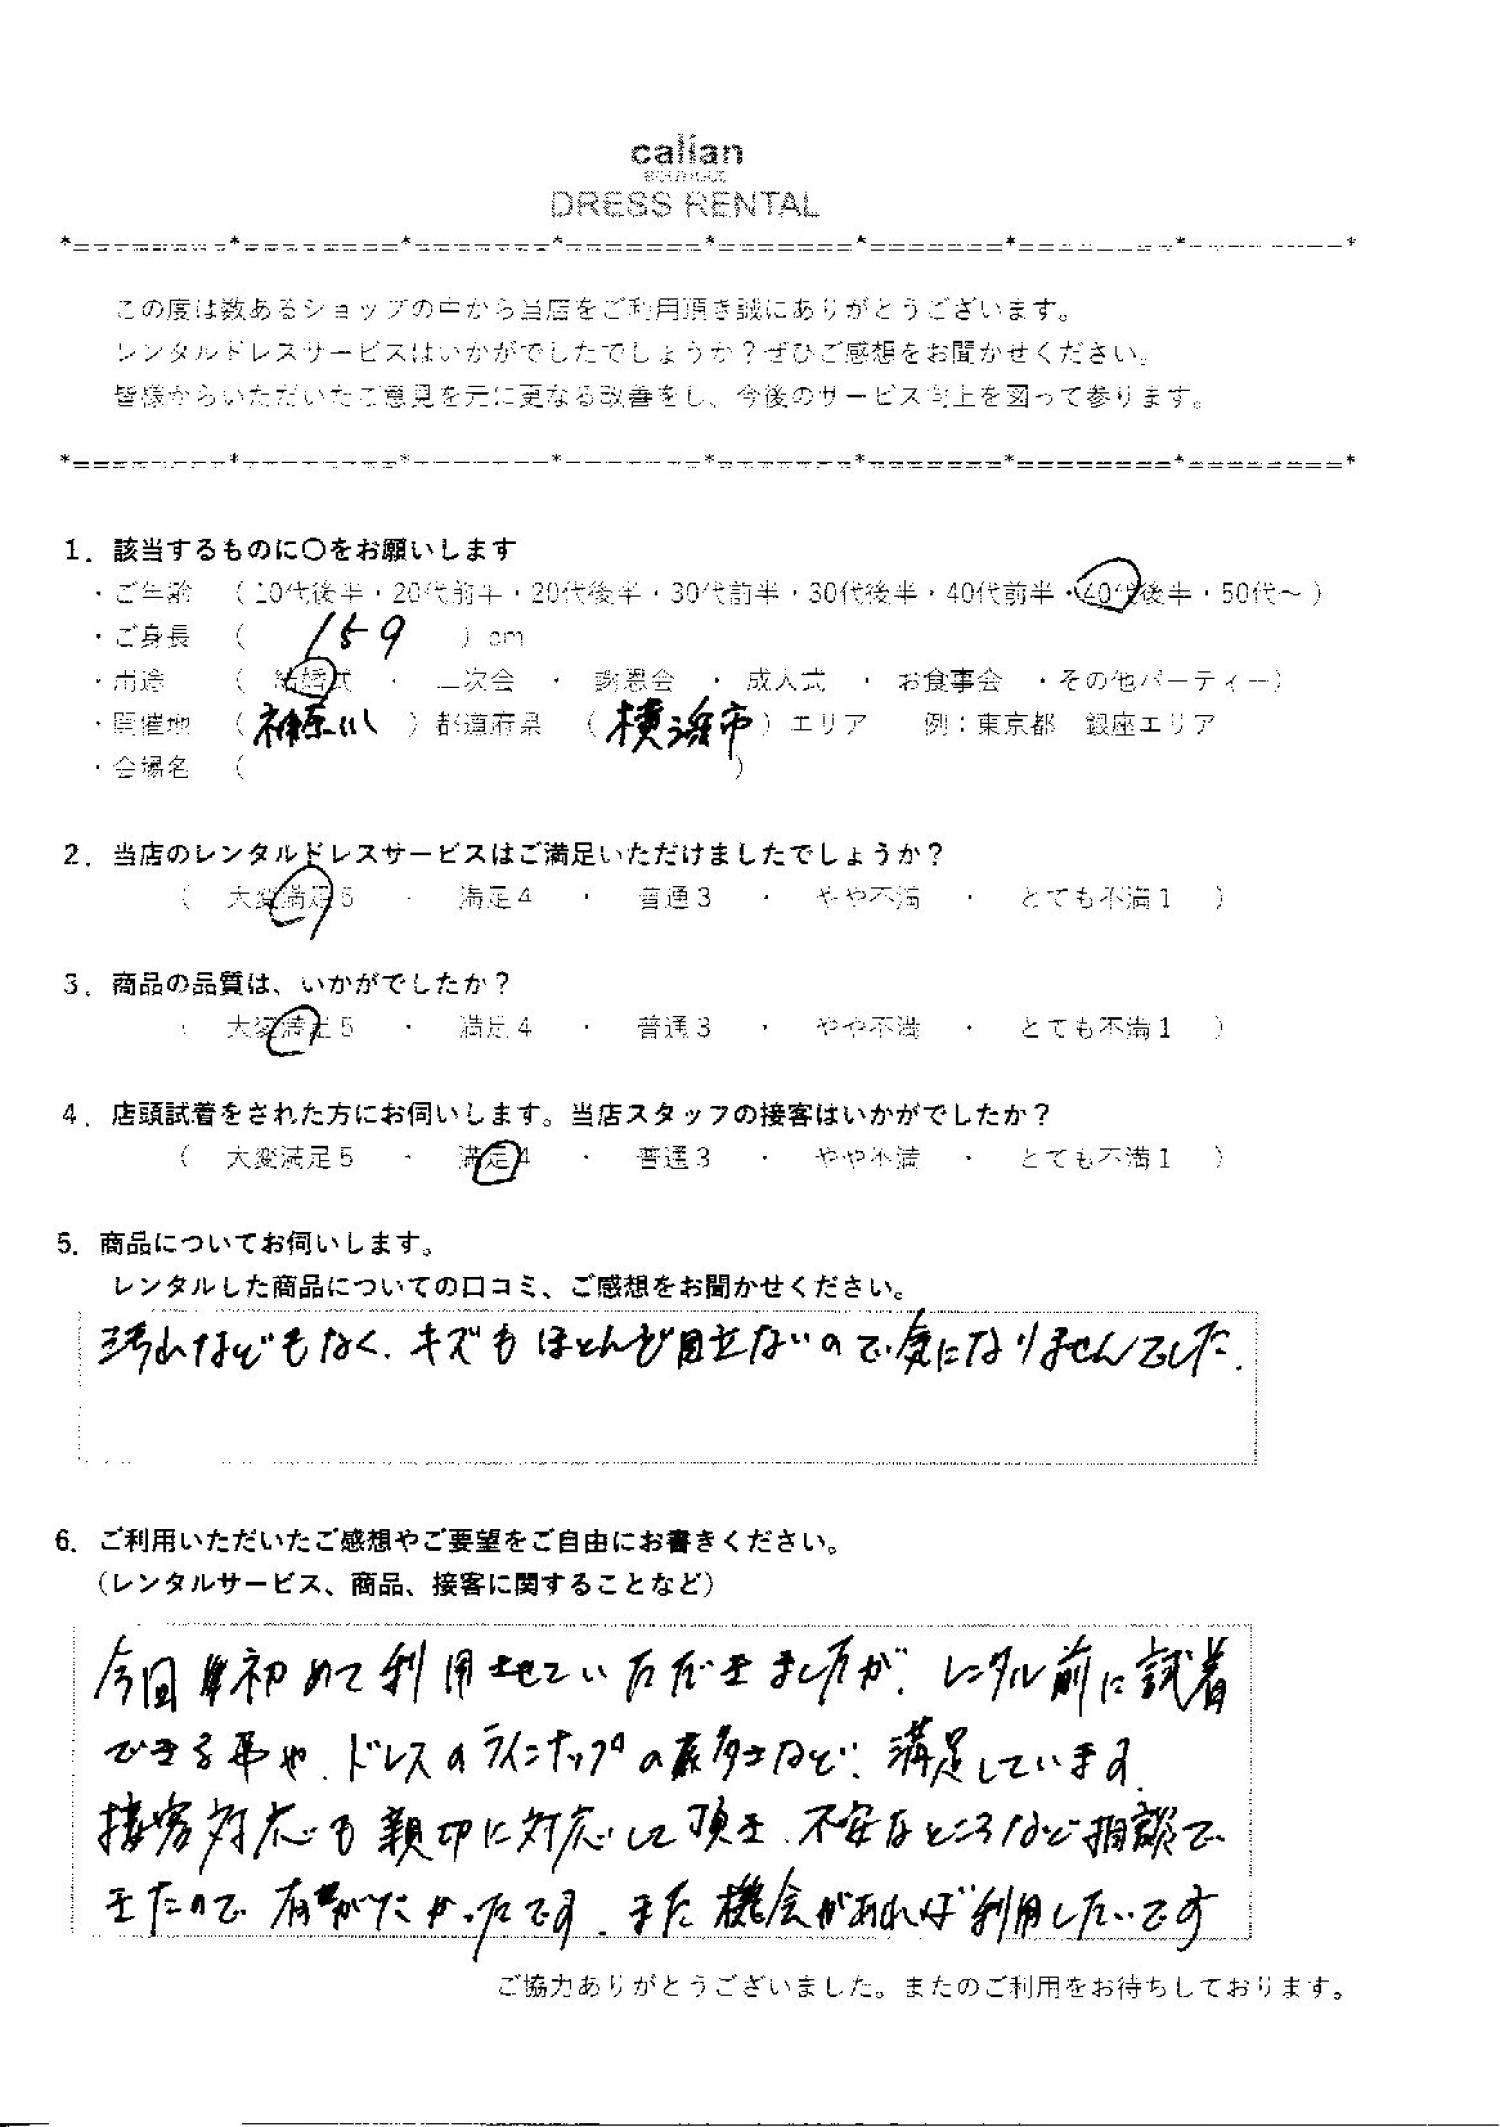 calian
DRESS RENTAL
*========*========*=======*=======*=======*=======*========*========*
この度は数あるショップの中から当店をご利用頂き誠にありがとうございます。
レンタルドレスサービスはいかがでしたでしょうか？ぜひご感想をお聞かせください。
皆様からいただいたご意見を元に更なる改善をし、今後のサービス向上を図って参ります。
*========*========*=======*=======*=======*=======*========*========*
1．該当するものに〇をお願いします
・ご年齢 （10代後半・20代前半・20代後半・30代前半・30代後半・40代前半・40代後半・50代～）
・ご身長 （ 159 ）cm
・用途 （ 結婚式 ・ 二次会 ・ 謝恩会 ・ 成人式 ・ お食事会 ・その他パーティー）
・開催地 （ 神奈川 ）都道府県 （ 横浜市 ）エリア 例：東京都 銀座エリア
・会場名 （ ）
2．当店のレンタルドレスサービスはご満足いただけましたでしょうか？
（ 大変満足5 ・ 満足4 ・ 普通3 ・ やや不満 ・ とても不満1 ）
3．商品の品質は、いかがでしたか？
（ 大変満足5 ・ 満足4 ・ 普通3 ・ やや不満 ・ とても不満1 ）
4．店頭試着をされた方にお伺いします。当店スタッフの接客はいかがでしたか？
（ 大変満足5 ・ 満足4 ・ 普通3 ・ やや不満 ・ とても不満1 ）
5．商品についてお伺いします。
レンタルした商品についての口コミ、ご感想をお聞かせください。
汚れなどもなく、キズもほとんど目立ないので、気になりませんでした。
6．ご利用いただいたご感想やご要望をご自由にお書きください。
（レンタルサービス、商品、接客に関することなど）
今回初めて利用させていただきましたが、レンタル前に試着
できる事や、ドレスのラインナップの多さなど、満足しています。
接客対応も親切に対応して頂き、不安なところなど相談で
きたので、有りがたかったです。また機会があれば利用したいです
ご協力ありがとうございました。またのご利用をお待ちしております。